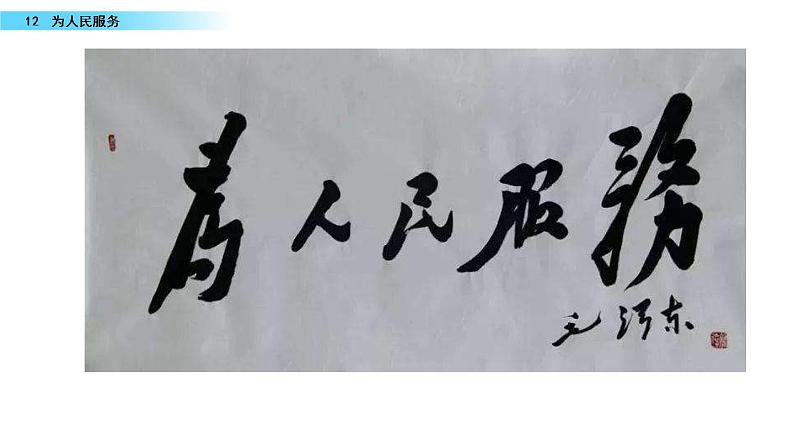 12 为人民服务
為人民服務
毛泽东